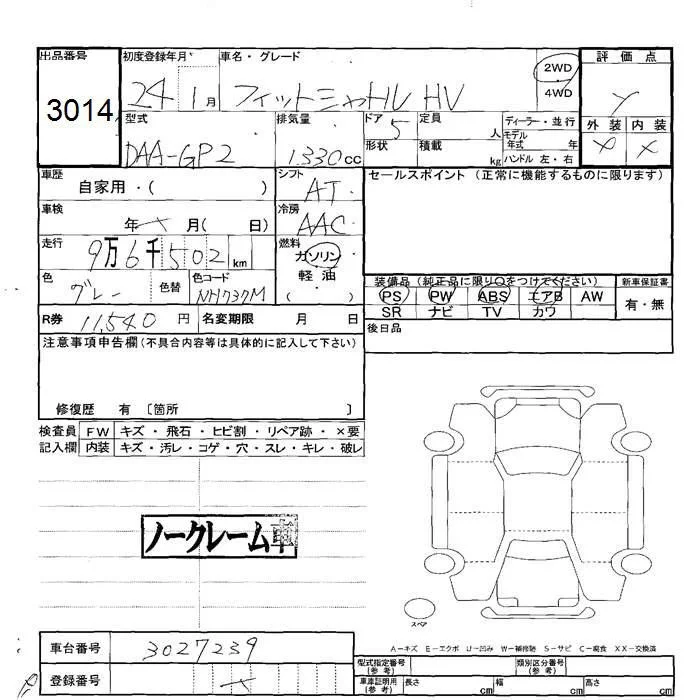 出品番号 初度登録年月 車名・グレード 2WD 評価点
3014 24 1月 フィットシャトルHV HV 4WD
型式 排気量 ドア 5 定員 人 ディーラー・並行 外装 内装
DAA-GP2 1.330cc 形状 積載 kg モデル年式 年 × ×
ハンドル 左・右
車歴 自家用・( ) シフト AT セールスポイント (正常に機能するものに限ります)
車検 年 × 月( 日) 冷房 AAC
走行 9万6千502km 燃料 ガソリン
色 グレー 色替 色コード NH737M 軽油 ( )
装備品 (純正品に限り○をつけてください) 新車保証書
PS PW ABS エアB AW 有・無
SR ナビ TV カワ
R券 11,540 円 名変期限 月 日 後日品
注意事項申告欄(不具合内容等は具体的に記入して下さい)
修復歴 有 〔箇所 〕
検査員 FW キズ・飛石・ヒビ割・リペア跡・×要
記入欄 内装 キズ・汚レ・コゲ・穴・スレ・キレ・破レ
ノークレーム車
スペア
A−キズ E−エクボ U−凹み W−補修跡 S−サビ C−腐食 XX−交換済
車台番号 3027239
型式指定番号(参考) 類別区分番号(参考)
登録番号 ×
車庫証明用(参考) 長さ cm 幅 cm 高さ cm